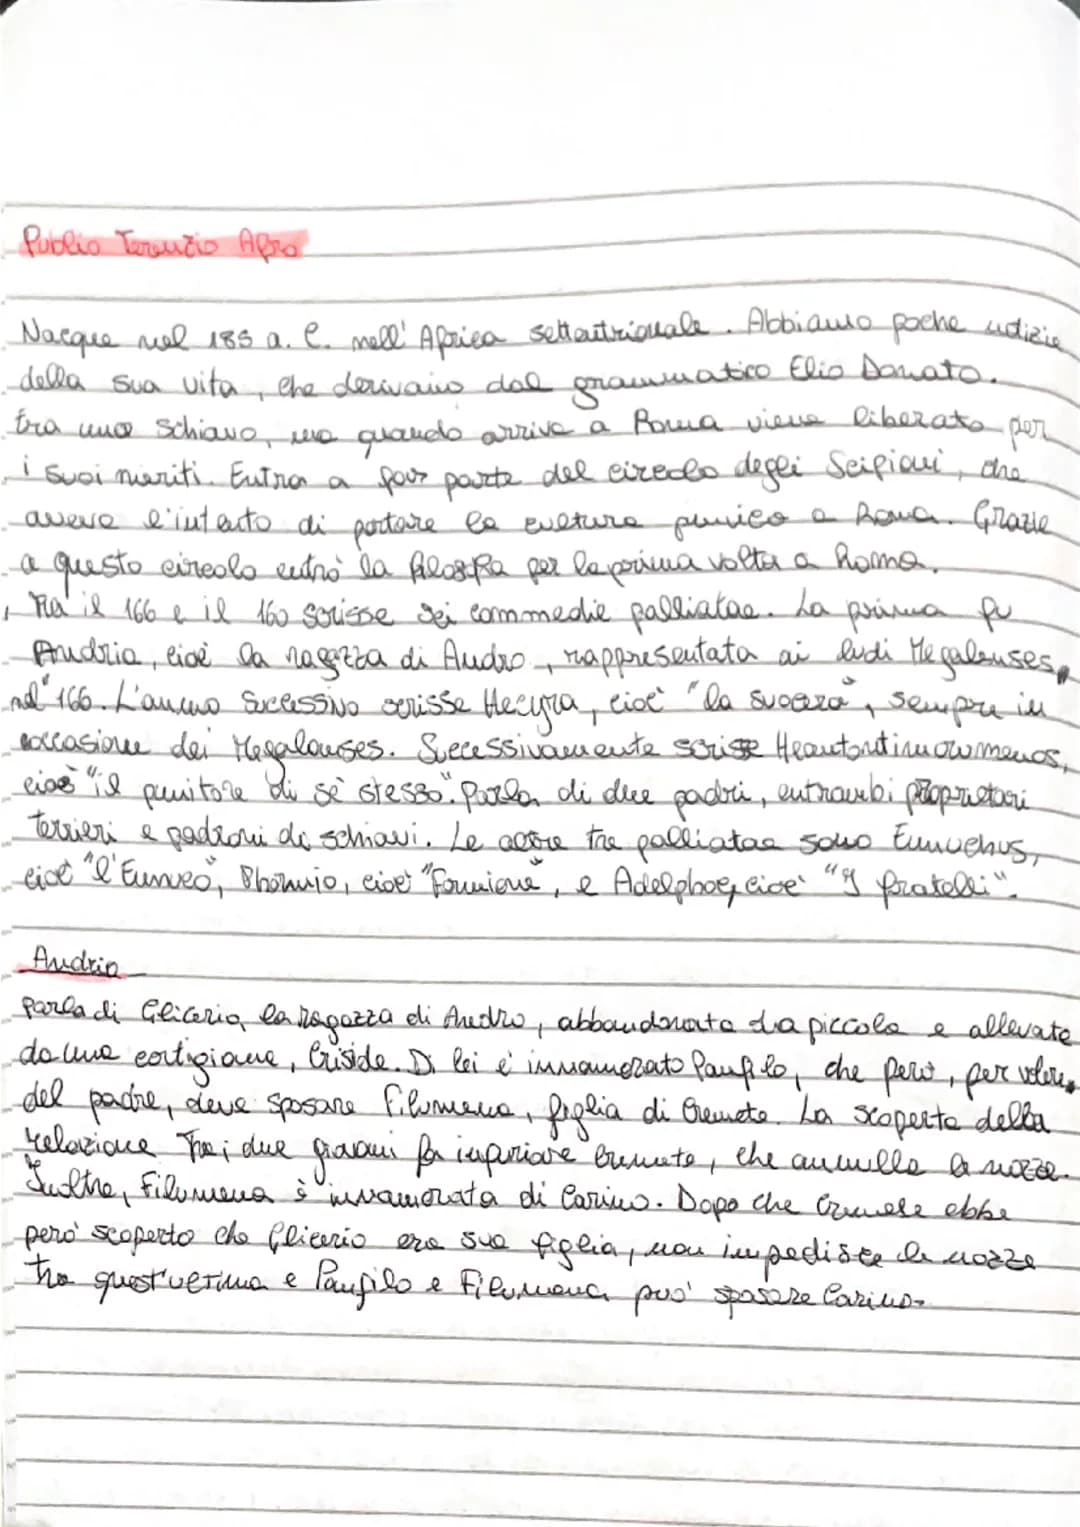 Publio Terenzio Afro
Nacque nel 185 a. C. nell'Africa settentrionale. Abbiamo poche notizie
della sua vita, che derivano dal grammatico Elio Donato.
Era uno schiavo, ma quando arriva a Roma viene liberato per
i suoi meriti. Entra a far parte del circolo degli Scipioni, che
aveva l'intento di portare la cultura punica a Roma. Grazie
a questo circolo entrò la filosofia per la prima volta a Roma.
Tra il 166 e il 160 scrisse sei commedie palliatae. La prima fu
Andria, cioè la ragazza di Andro, rappresentata ai ludi Megalenses
nel 166. L'anno successivo scrisse Hecyra, cioè "la suocera", sempre in
occasione dei Megalenses. Successivamente scrisse
cioè "il punitore di sè stesso". Parla di due padri, entrambi proprietari
terrieri e padroni di schiavi. Le altre tre palliatae sono Eunuchus,
cioè "l'Eunuco", Phormio, cioè "Formione", e Adelphoe, cioè "I fratelli".
Andria
Parla di Glicerio, la ragazza di Andro, abbandonata da piccola e allevata
da una cortigiana, Criside. Di lei è innamorato Panfilo, che però, per volere
del padre, deve sposare Filumena, figlia di Cremete. La scoperta della
relazione tra i due giovani fa infuriare Cremete, che annulla le nozze.
Inoltre, Filumena è innamorata di Carino. Dopo che Cremete ebbe
però scoperto che Glicerio era sua figlia, non impedisce le nozze
tra quest'ultima e Panfilo e Filumena può sposare Carino.